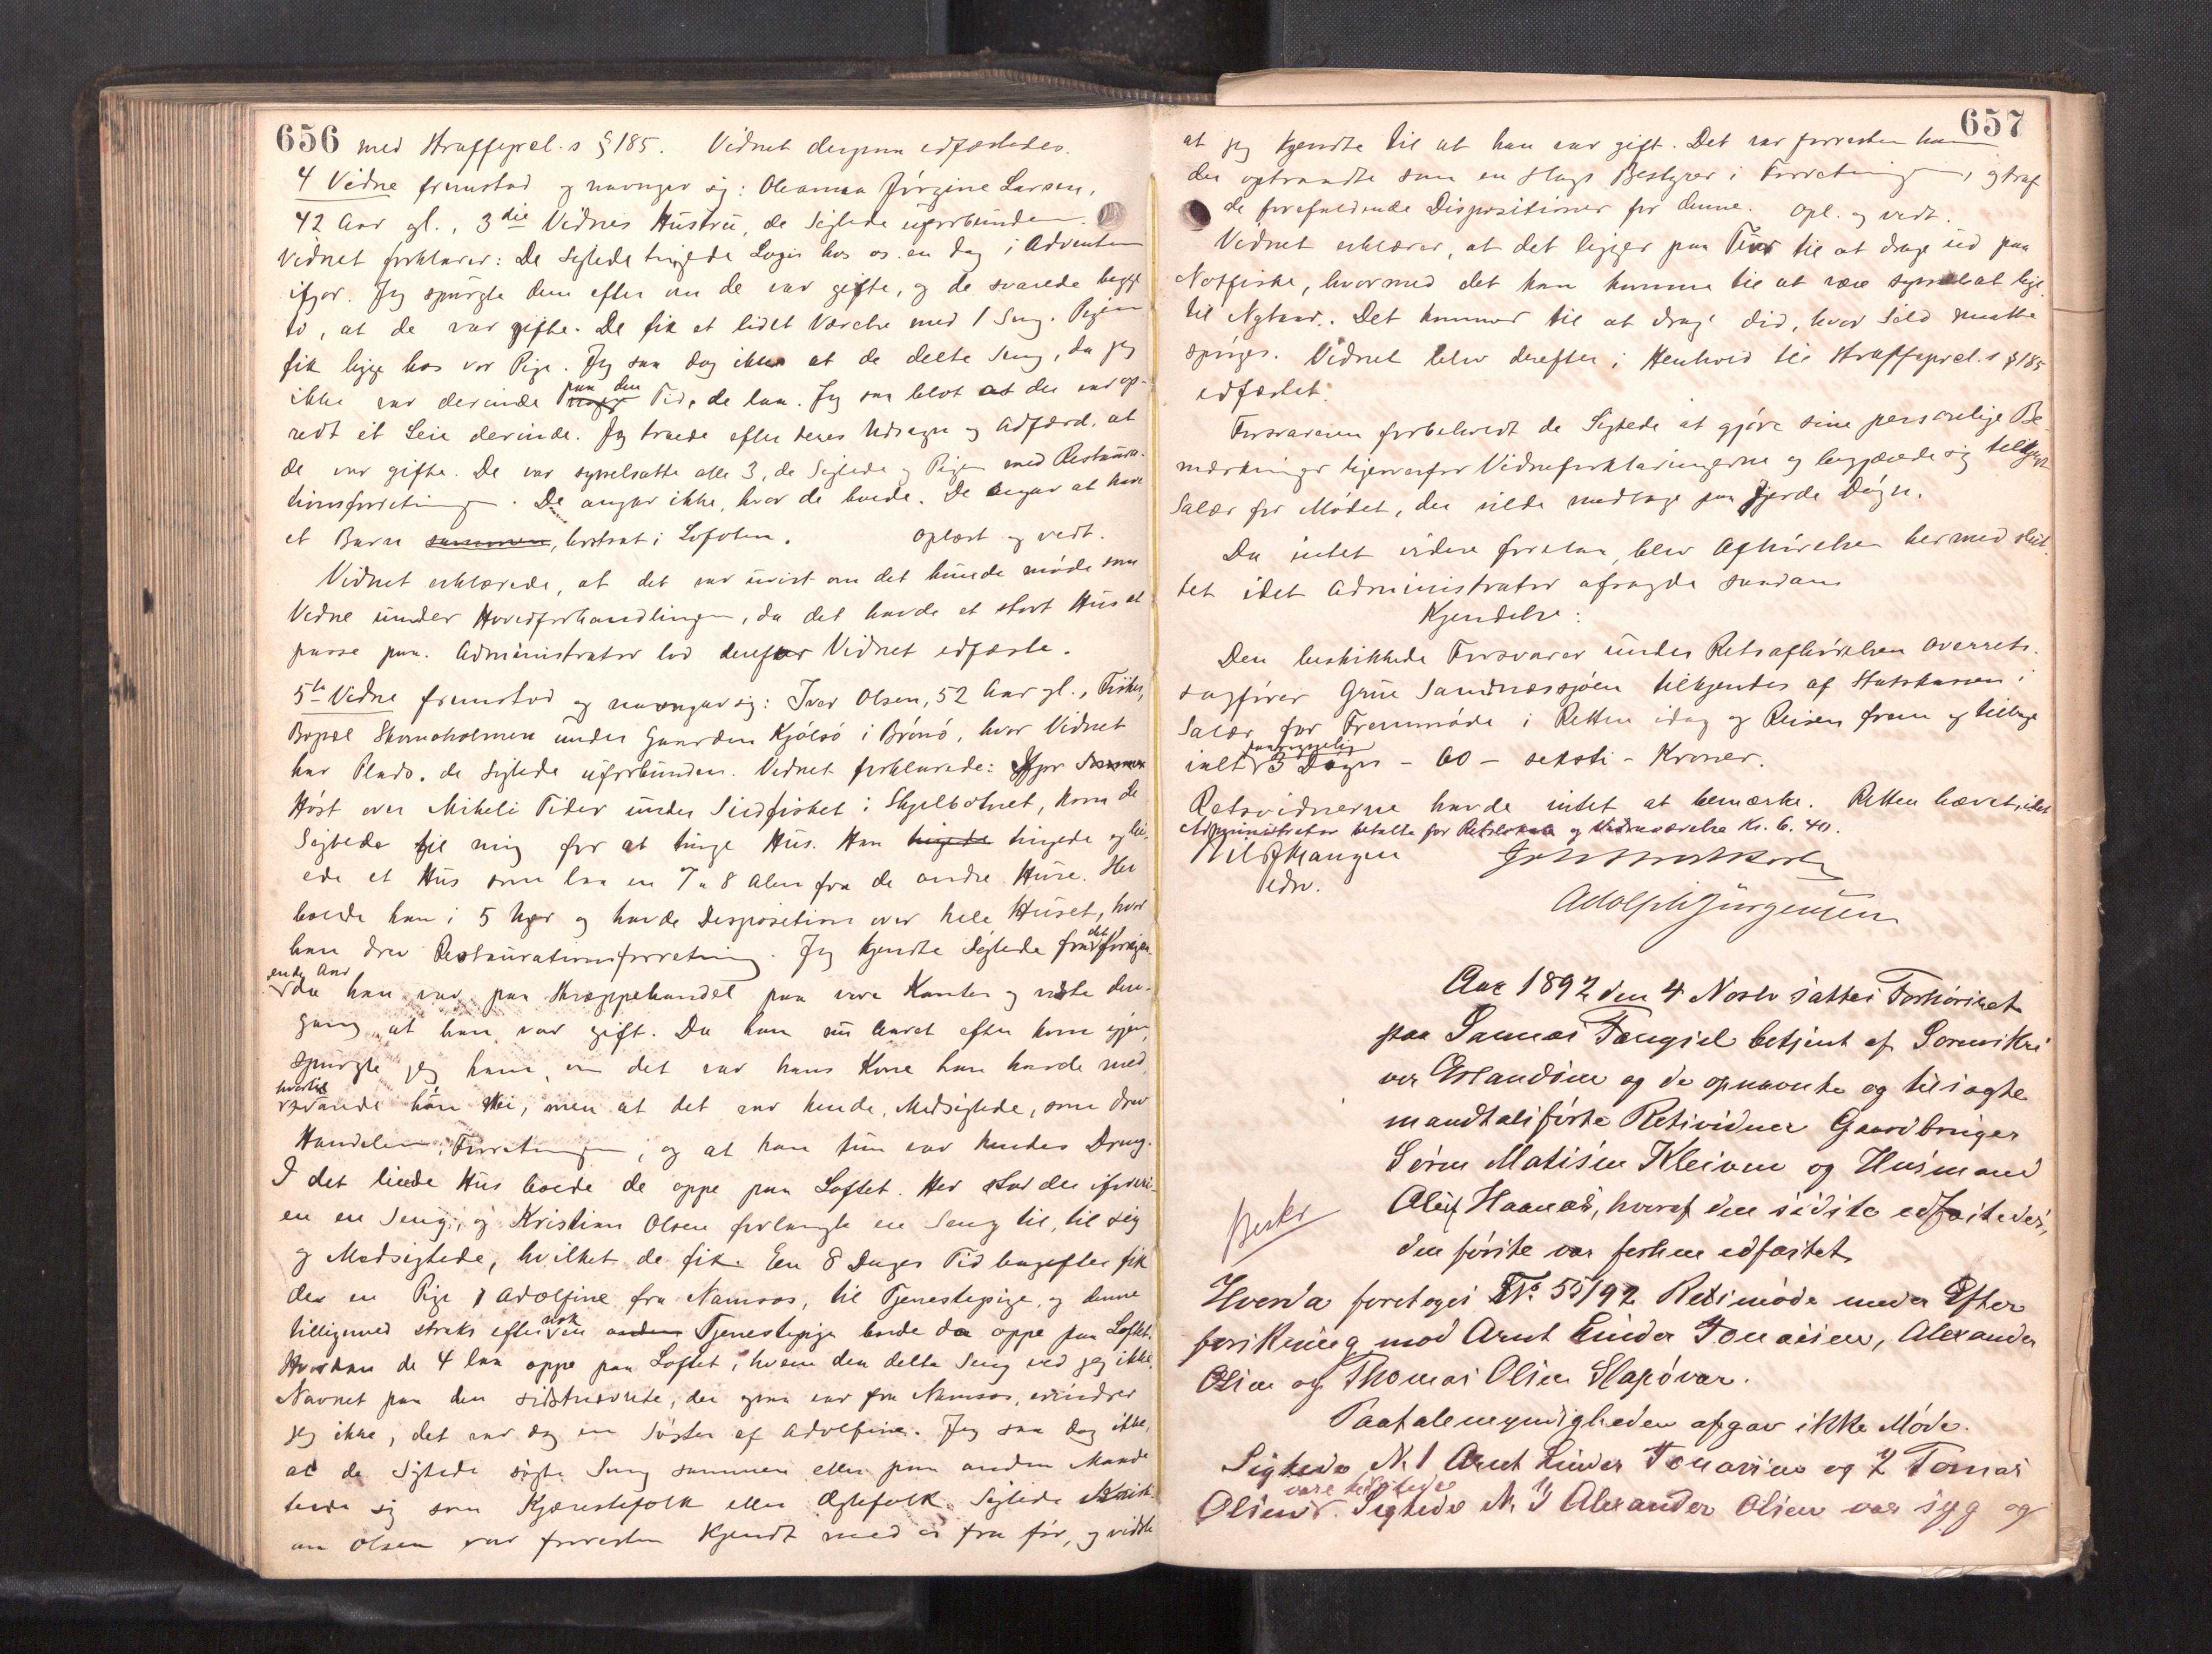 656 med Straffeprcl.s § 185. Vidnet derpaa edfæstedes.
4 Vidne fremstod og navngav sig: Oleanna Jørgine Larsen,
42 Aar gl., 3die Vidnes Hustru, de Sigtede uforbunden.
Vidnet forklarer: De Sigtede tingede Logis hos os en Dag i Adventen
ifjor. Jeg spurgte dem efter om de var gifte, og de svarede begge
to, at de var gifte. De fik et lidet Værelse med 1 Seng. Pigen
fik ligge hos vor Pige. Jeg saa dog ikke at de delte Seng, da jeg
ikke var derinde paa den Tid, de laa. Jeg saa blot at der var op-
redt et Leie derinde. Jeg troede efter deres Udsagn og Adfærd, at
de var gifte. De var sysselsatte alle 3, de Sigtede og Pigen med Restaura-
tionsforretningen. De angav ikke, hvor de boede. De angav at have
et Barn sammen, bortsat i Lofoten. Oplæst og vedt.
Vidnet erklærede, at det var uvist om det kunde møde som
Vidne under Hovedforhandlingen, da det havde et stort Hus at
passe paa. Administrator lod derefter Vidnet edfæste.
5te Vidne fremstod og navngav sig: Iver Olsen, 52 Aar gl., Fisker,
Bopæl Skomoholmen under Gaarden Kjølsö i Brönö, hvor Vidnet
har Plads, de Sigtede uforbunden. Vidnet forklarede: Ifjor Sommer
Høst over Mikeli Tider under Sildfisket i Skjelbotnet, kom de
Sigtede til mig for at tinge Hus. Han tingede tingede og lei-
ede et Hus som laa en 7 a 8 Alen fra de andre Huse. Her
boede han i 5 Uger og havde Desposition over hele Huset, hvor
han drev Restaurationsforretning. Jeg kjendte Sigtede fra det foregaa-
ende Aar
da han var paa Skreppehandel paa vore Kanter og vidste den-
gang, at han var gift. Da han nu Aaret efter kom igjen,
spurgte jeg ham, om det var hans Kone han havde med,
hvortil
svarede han Nei, men at det var hende, Medsigtede, som drev
Handelen, Forretningen, og at han kun var hendes Dreng.
I det leiede Hus boede de oppe paa Loftet. Her stod der iforvei-
en en Seng, og Kristian Olsen forlangte en Seng til, til sig
og Medsigtede, hvilket de fik. En 8 Dages Tid bagefter fik
de en Pige, Adolfine fra Namsos, til Tjenestepige, og denne
tilligemed straks efter nok en anden Tjenestepige boede da oppe paa Loftet.
Hvordan de 4 laa oppe paa Loftet, hvem der delte Seng ved jeg ikke.
Navnet paa den sidstnævnte, der ogsaa var fra Namsos, erindrer
jeg ikke, det var dog en Søster af Adolfine. Jeg saa dog ikke,
at de Sigtede søgte Seng sammen eller paa anden Maade
tede sig som Kjærestefolk eller Ægtefolk. Sigtede Kristi-
an Olsen var forresten kjendt med os fra før, og vidste
657
at jeg kjendte til at han var gift. Det var forresten ham
der optraadte som en Slags Bestyrer i Forretningen, og traf
de forefaldende Dispositioner for denne. Opl. og vedt.
Vidnet erklærer, at det ligger paa Tur til at drage ud paa
Notfiske, hvormed det kan komme til at være sysselsat lige
til Nytaar. Det kommer til at drage did, hvor Sild maatte
spørges. Vidnet blev derefter i Henhold til Straffeprcl.s § 185
edfæstet.
Forsvareren forbeholdt de Sigtede at gjøre sine personlige Be-
mærkninger ligeoverfor Vidneforklaringerne og begjærede sig tilkjendt
Salær for Mødet, der vilde medtage paa fjerde Døgn.
Da intet videre forelaa, blev Afhørelsen hermed slut-
tet idet Administrator afsagde saadan
Kjendelse:
Den beskikkede Forsvarer under Retsafhørelsen Overrets-
sagfører Grüe Sandnessjøen tilkjendes af Statskassen i
Salær for Fremmøde i Retten idag og Reisen frem og tilbage
ialt 3 Døgn – 60 – seksti – Kroner.
Retsvidnerne havde intet at bemærke. Retten hævet, idet
Administrator betalte for Retslokale og Vidneværelse Kr. 6.40.
edsv.
Adolph Jürgensen
Aar 1892 den 4 Novbr sattes Forhørsret
paa Sannæs Tængsel betjent af Sorenskri
ver Erlandsen og de opnævnte og tilsagte
mandtalsførte Retsvidner Gaardbruger
Søren Matisen Kleiven og Husmand
Oluf Haanæs, hvoraf den sidste edfæstedes,
den første var forhen edfæstet.
Hvorda foretoges No 55/92 Retsmøde under Efter
forskning mod Arnt Linder Tonassen, Alexander
Olsen og Thomas Olsen Slapøvær.
Paatalemyndigheden afgav ikke Møde.
Sigtede N. 1 Arnt Linder Tonassen og 2 Tomas
vare tilstede
Olsen. Sigtede N. 3 Alexander Olsen var syg og